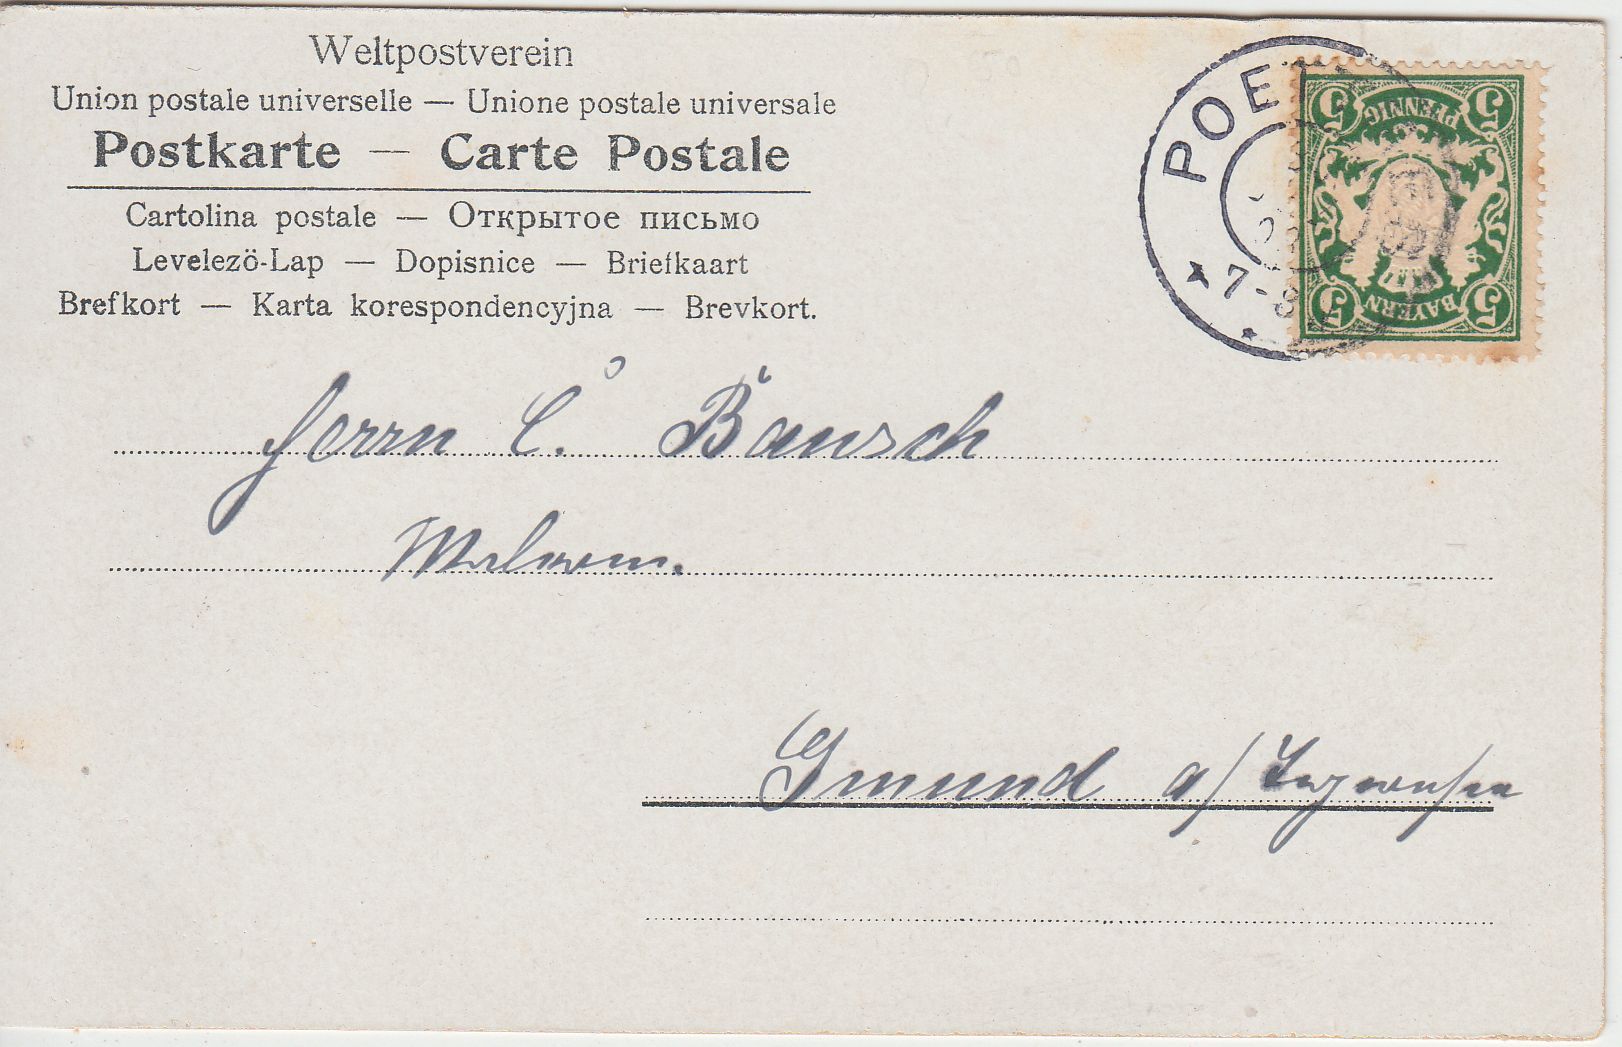 Weltpostverein
Union postale universelle — Unione postale universale
Postkarte — Carte Postale
Cartolina postale — Открытое письмо
Levelezö-Lap — Dopisnice — Briefkaart
Brefkort — Karta korespondencyjna — Brevkort.
POE
7-8
5 PFENNIG 5
5 BAYERN 5
Herrn C. Bausch
Gmund a/ Tegernsee